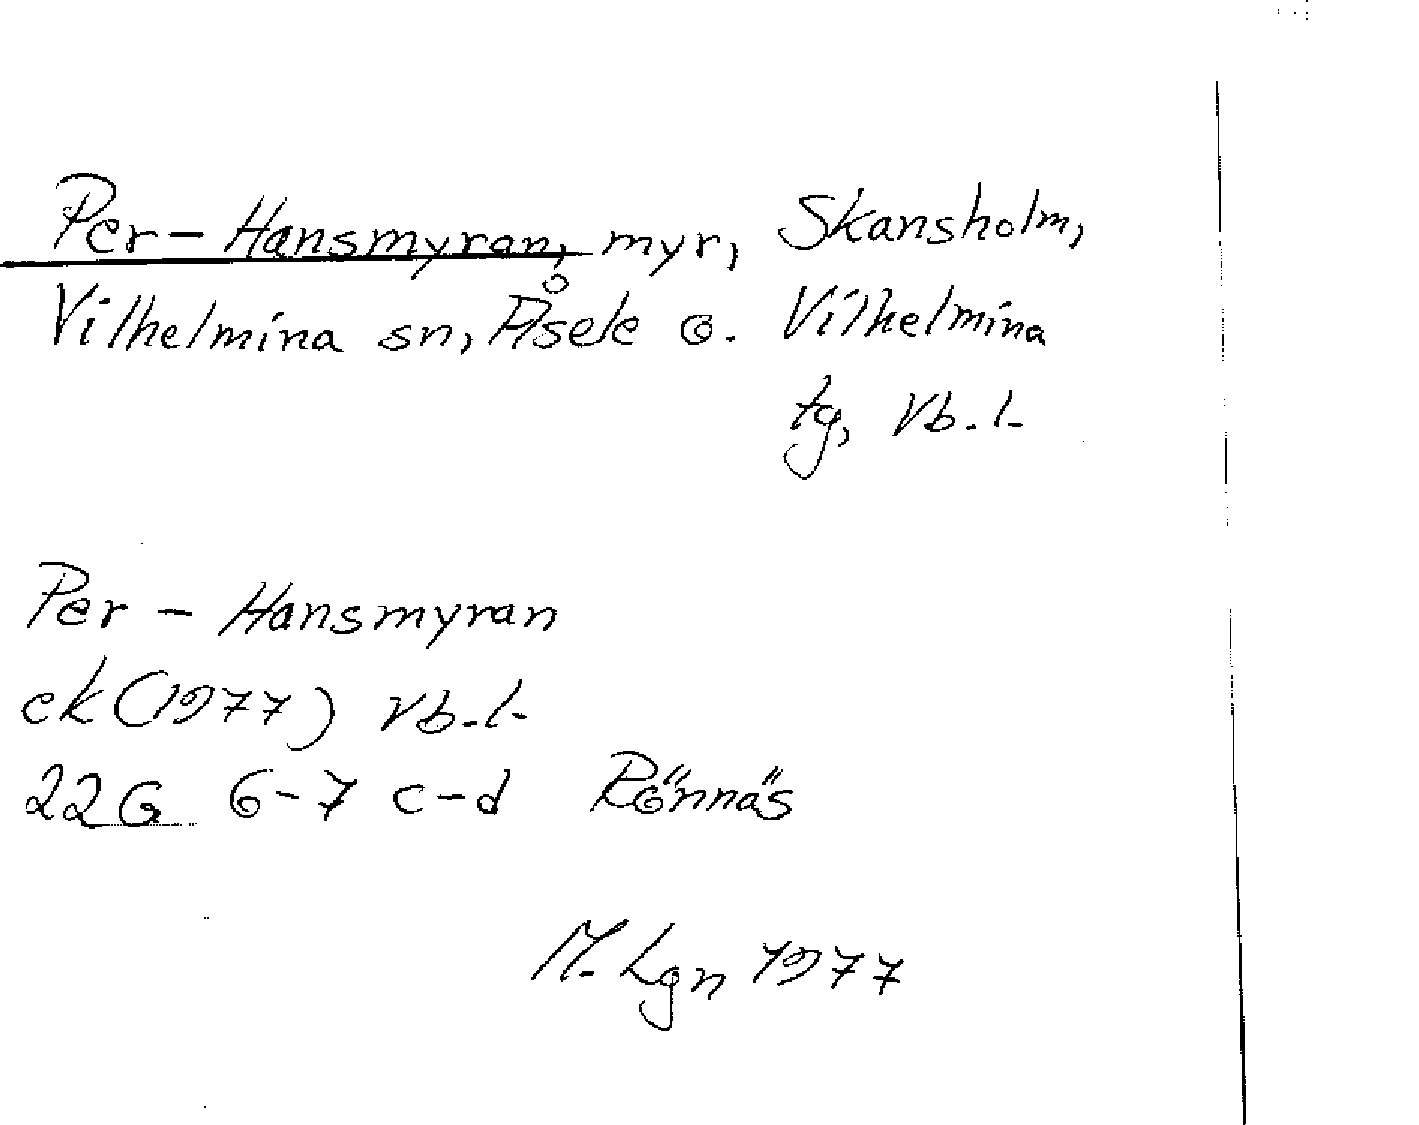 Per-Hansmyran, myr, Skansholm,
Vilhelmina sn, Åsele o. Vilhelmina
tg, Vb. l.
Per - Hansmyran
ek (1977) Vb. l.
22G 6-7 c-d Rönnäs
M. Lgn 1977